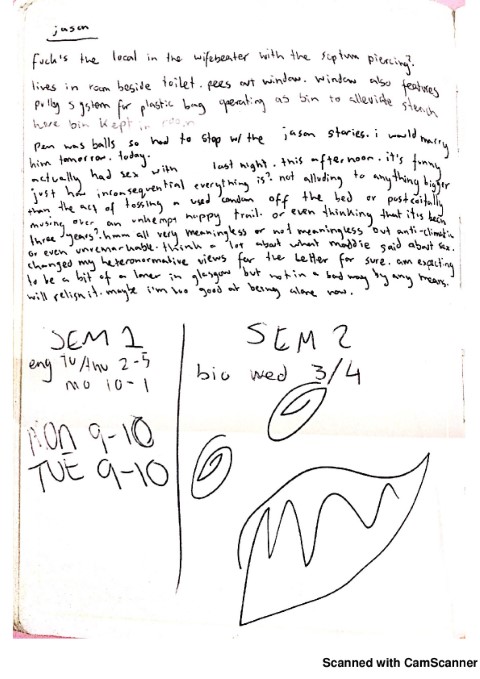 jason
fuck's the local in the wifebeater with the septum piercing?
lives in room beside toilet. pees out window. window also features
pully system for plastic bag operating as bin to alleviate stench
have bin kept in room
pen was balls so had to stop w/ the jason stories. i would marry
him tomorrow. today.
actually had sex with last night. this afternoon. it's funny
just how inconsequential everything is? not alluding to anything bigger
than the act of tossing a used condom off the bed or postcoitally
musing over an unkempt happy trail. or even thinking that it's been
three years? hmm all very meaningless or not meaningless but anti-climatic
or even unremarkable. think a lot about what maddie said about sex.
changed my heteronormative views for the better for sure. am expecting
to be a bit of a loner in glasgow but not in a bad way by any means.
will relish it. maybe i'm too good at being alone now.
SEM 1
eng Tu/thu 2-5
mo 10-1
MON 9-10
TUE 9-10
SEM 2
bio wed 3/4
Scanned with CamScanner